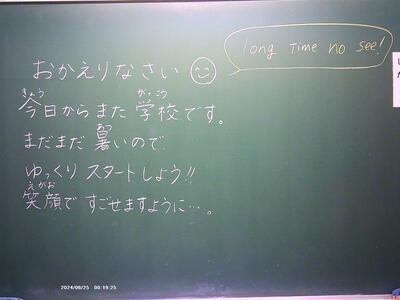 おかえりなさい
long time no see!
今日からまた学校です。
まだまだ暑いので
ゆっくりスタートしよう!!
笑顔ですごせますように…。
きょう
がっこう
あつ
えがお
2024/08/25 00:19:25